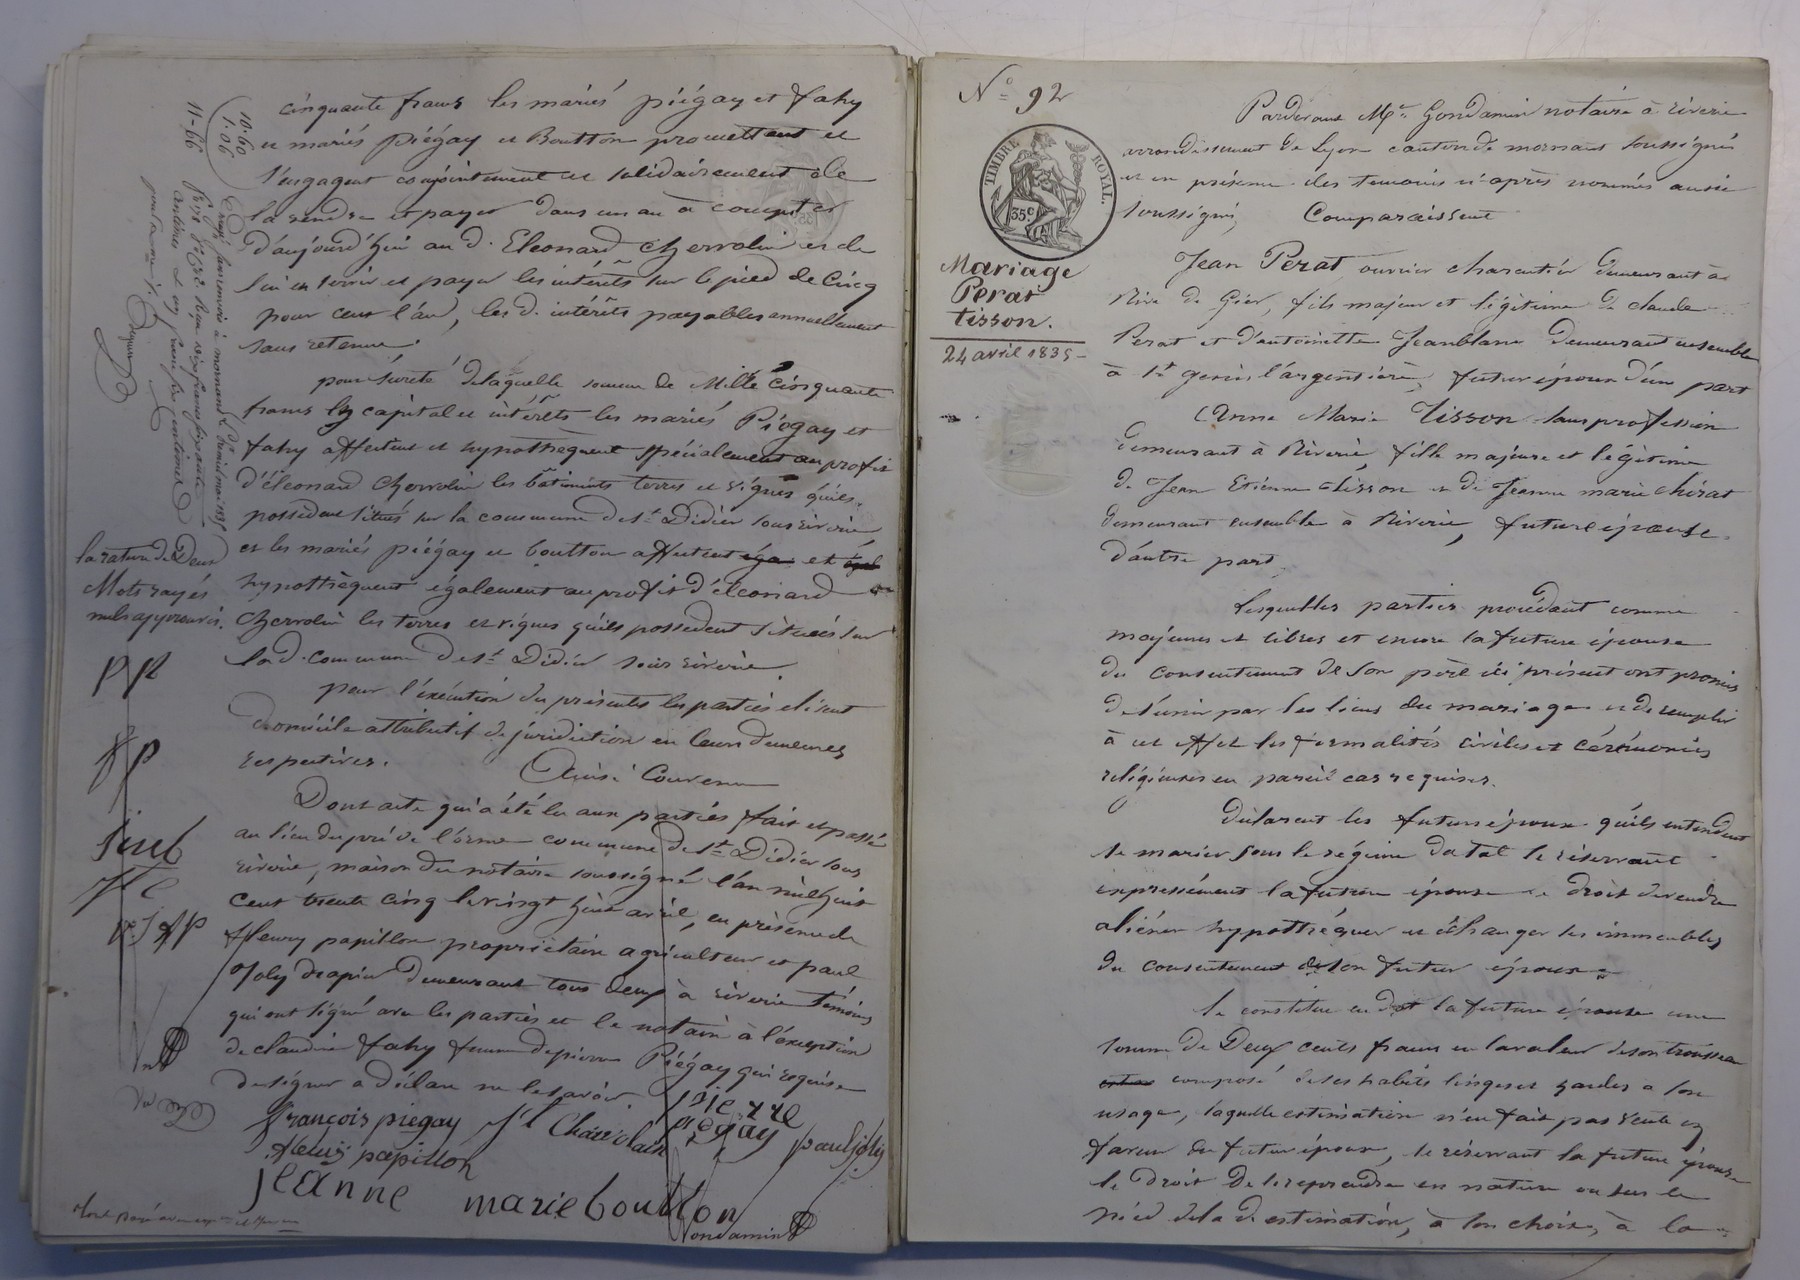 cinquante francs les mariés piégay et fahy
et mariés piégay et Boutton promettent et
s'engagent conjointement et solidairement de
la rendre et payer dans un an à compter
d'aujourd'hui au d. Eleonard Chervolin et de
lui en servir et payer les intérêts sur le pied de Cinq
pour cent l'an, les d. intérêts payables annuellement
sans retenue.
pour sureté de laquelle somme de Mille Cinquante
francs en capital et intérêts les mariés Piégay et
fahy affectent et hypothequent spécialement au profit
d'éleonard Chervolin les bâtiments terres et vignes qu'ils
possèdent situés sur la commune de St Didier sous riverie
et les mariés piégay et boutton affectent et
hypothèquent également au profit d'éleonard
Chervolin les terres et vignes qu'ils possedent situées sur
la d. commune de St Didier sous riverie.
pour l'exécution des présentes les parties élisent
domicile attributif de juridiction en leurs demeures
respectives. Ainsi Convenu
Dont acte qui a été lu aux parties fait et passé
au lieu du pré de l'orme commune de St Didier sous
riverie, maison du notaire soussigné l'an mil huit
cent trente cinq le vingt huit avril, en présence de
fleury papillon propriétaire agriculteur et paul
Joly drapier demeurant tous deux à riverie témoins
qui ont signé avec les parties et le notaire à l'exception
de claudine fahy femme de pierre Piégay qui requise
de signer a déclaré ne le savoir.
françois piegay
pierre
piegay
paul joly
fleury papillon
jeanne marie boutton
Gondamin
10.60
1.06
11-66
la rature de Deux
Mots rayés
nuls approuvés.
N° 92
TIMBRE ROYAL.
35 c
Mariage
Perat
tisson.
24 avril 1835
Pardevant Me Gondamin notaire à riverie
arrondissement de Lyon canton de mornant soussigné
et en présence des temoins ci après nommés aussi
soussignés, Comparaissent
Jean Perat ouvrier charpentier demeurant à
Rive de Gier, fils majeur et légitime de claude
Perat et d'antoinette Jeanblanc demeurant ensemble
à St genis l'argentière, futur époux d'une part
Anne Marie Tisson sans profession
demeurant à Riverie, fille majeure et légitime
de Jean Etienne tisson et de Jeanne marie chirat
demeurant ensemble à Riverie, future épouse
d'autre part.
Lesquelles parties procédant comme
majeures et libres et encore la future épouse
du consentement de son père ici présent ont promis
de s'unir par les liens du mariage et de remplir
à cet effet les formalités civiles et cérémonies
religieuses en pareil cas requises.
Déclarent les futurs époux qu'ils entendent
se marier sous le régime dotal se réservant
expressément la future épouse le droit de vendre
aliéner hypothéquer et échanger ses immeubles
du consentement de son futur époux
Se constitue en dot la future épouse une
somme de Deux cents francs en la valeur de son trousseau
composé de ses habits linges et hardes à son
usage, laquelle estimation n'en fait pas vente en
faveur du futur époux, se réservant la future épouse
le droit de le reprendre en nature ou sur le
pied de la d. estimation, à son choix, à la